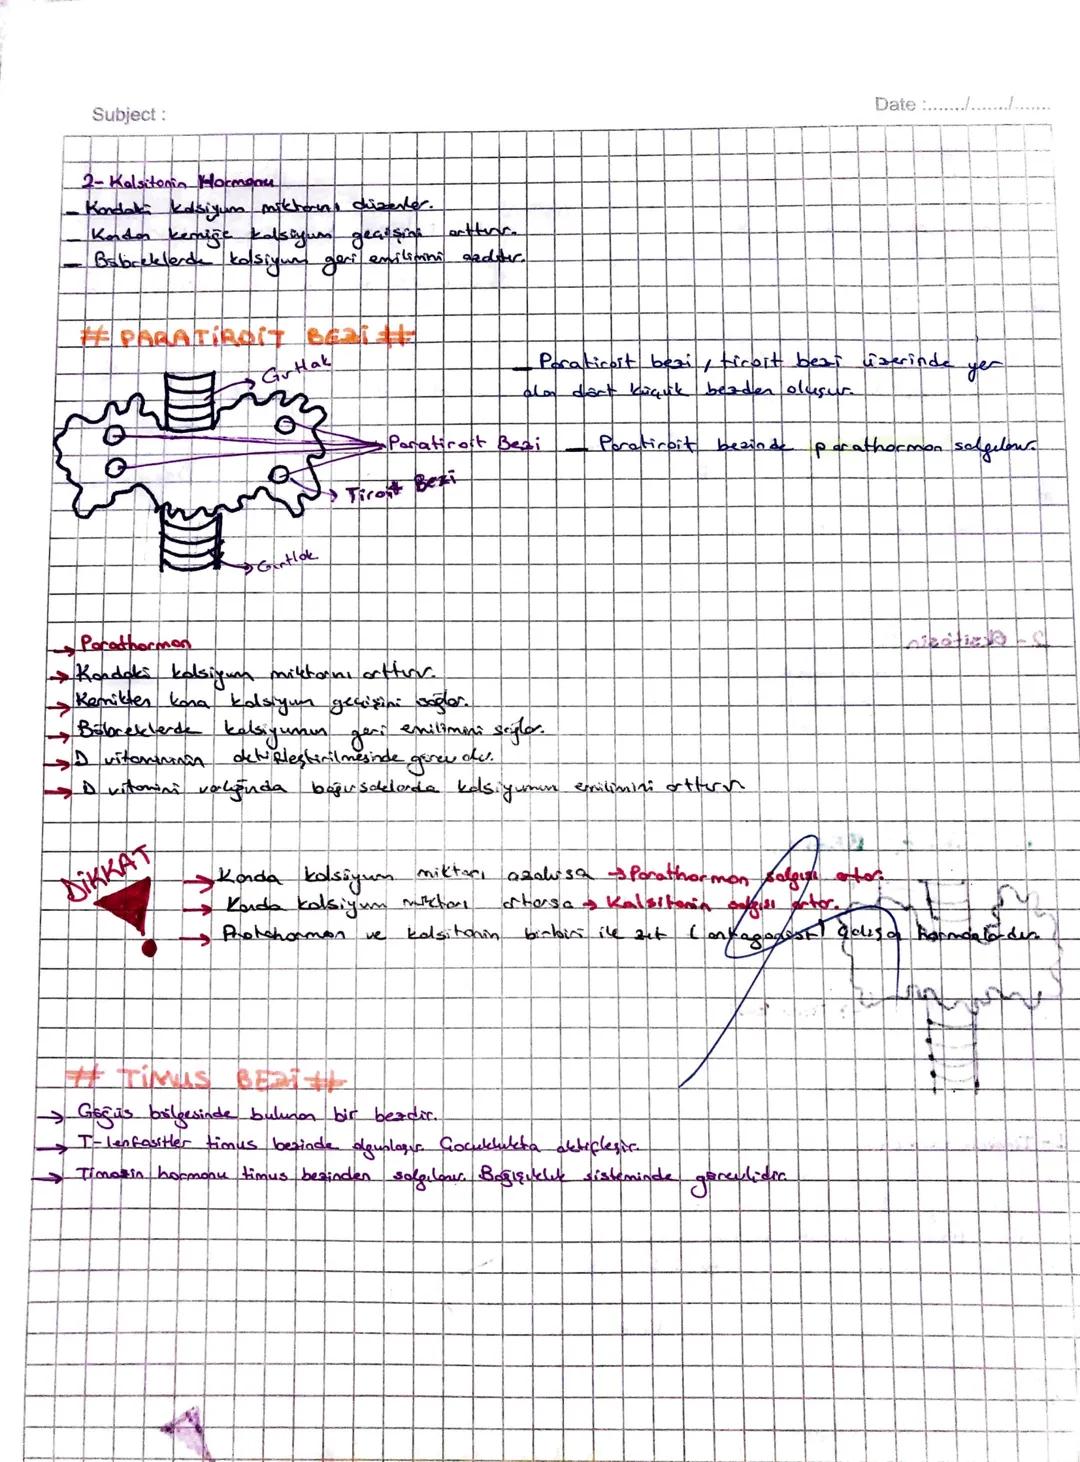 Subject :
Date :......./......./.......
2- Kalsitonin Hormonu
- Kandaki kalsiyum miktarını düzenler.
- Kandan kemiğe kalsiyum geçişini arttırır.
- Böbreklerde kalsiyum geri emilimini azaltır.
# PARATİROİT BEZİ #
Gırtlak
- Paratiroit bezi, tiroit bezi üzerinde yer
alan dört küçük bezden oluşur.
Paratiroit Bezi
- Paratiroit bezinde parathormon salgılanır.
Tiroit Bezi
Gırtlak
→ Parathormon
→ Kandaki kalsiyum miktarını arttırır.
→ Kemikten kana kalsiyum geçişini sağlar.
→ Böbreklerde kalsiyumun geri emilimini sağlar.
→ D vitamininin aktifleştirilmesinde görev alır.
→ D vitamini varlığında bağırsaklarda kalsiyumun emilimini arttırır
DİKKAT
→ Kanda kalsiyum miktarı azalırsa → Parathormon salgısı artar.
→ Kanda kalsiyum miktarı artarsa → Kalsitonin salgısı artar.
→ Parathormon ve kalsitonin birbiri ile zıt (antagonist) çalışan hormonlardır.
# TİMUS BEZİ #
→ Göğüs bölgesinde bulunan bir bezdir.
→ T-lenfositler timus bezinde olgunlaşır. Çocuklukta aktifleşir.
→ Timozin hormonu timus bezinden salgılanır. Bağışıklık sisteminde görevlidir.